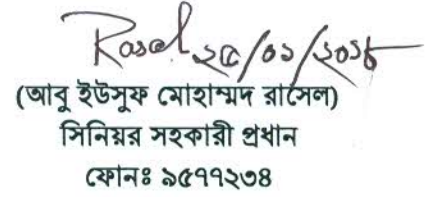 Rasel ২৫/০১/২০১৮
(আবু ইউসুফ মোহাম্মদ রাসেল)
সিনিয়র সহকারী প্রধান
ফোনঃ ৯৫৭৭২৩৪